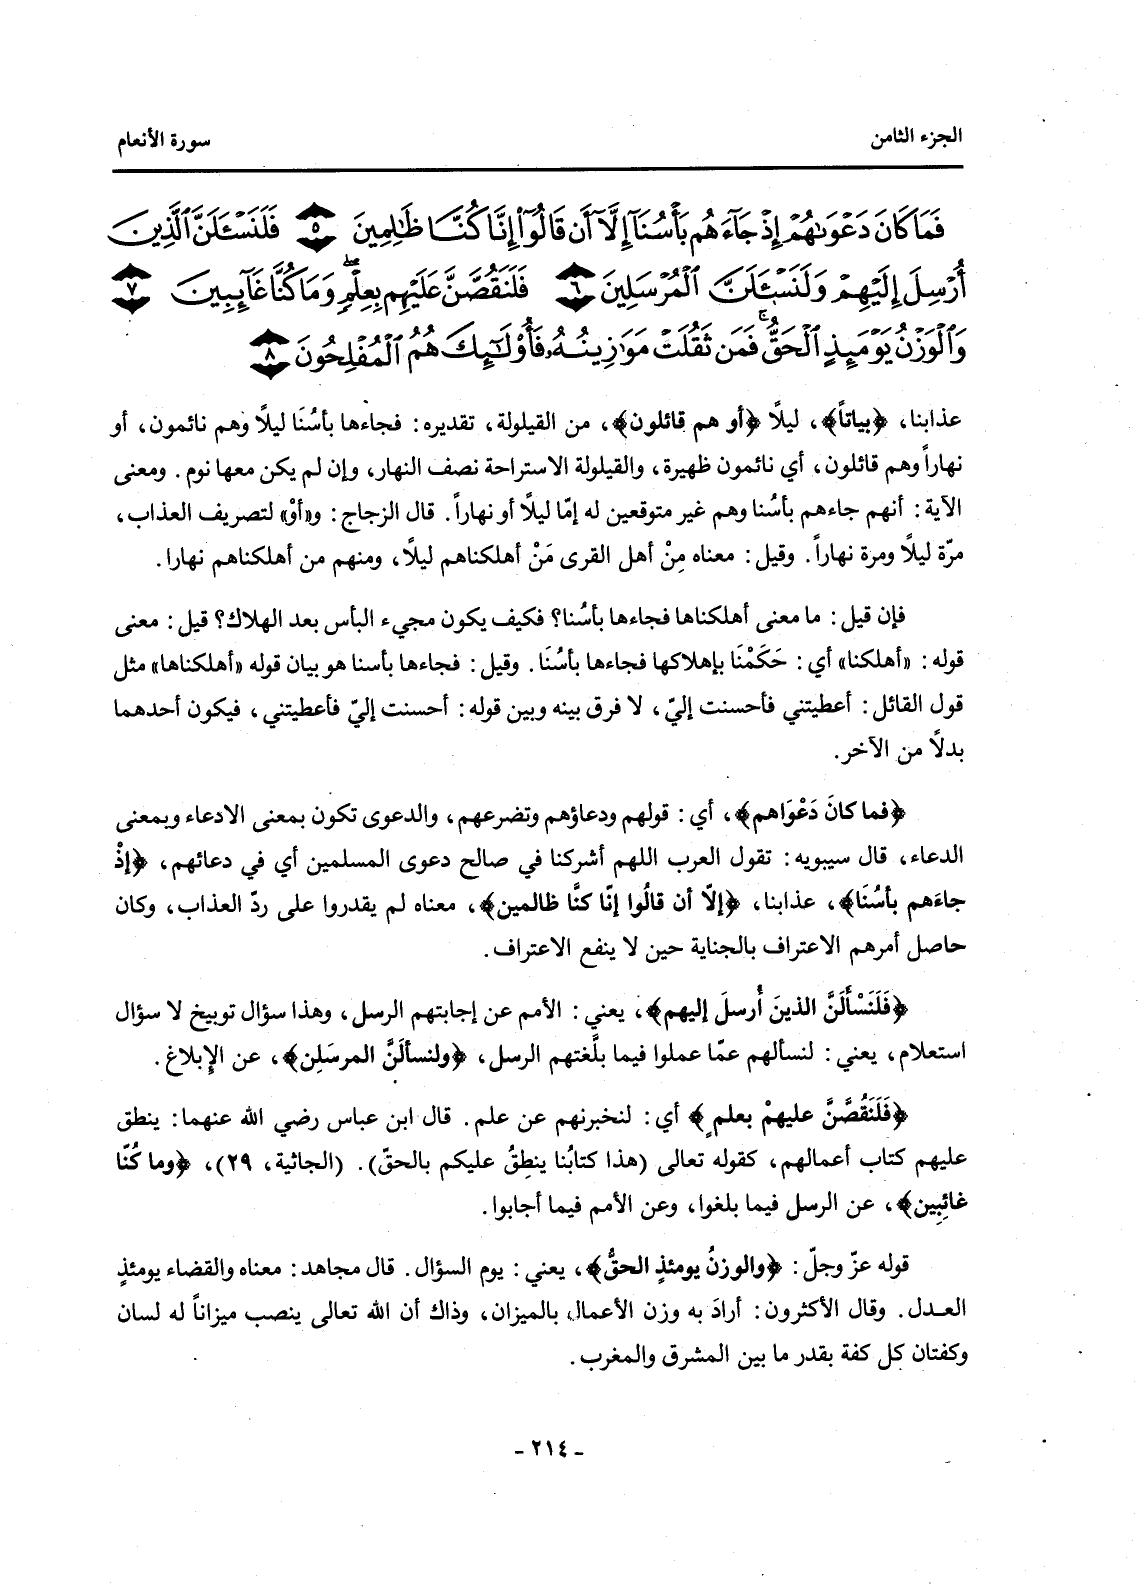 الجزء الثامن
سورة الأنعام
فَمَا كَانَ دَعْوَىٰهُمْ إِذْ جَآءَهُم بَأْسُنَآ إِلَّآ أَن قَالُوٓا۟ إِنَّا كُنَّا ظَٰلِمِينَ ٥ فَلَنَسْـَٔلَنَّ ٱلَّذِينَ
أُرْسِلَ إِلَيْهِمْ وَلَنَسْـَٔلَنَّ ٱلْمُرْسَلِينَ ٦ فَلَنَقُصَّنَّ عَلَيْهِم بِعِلْمٍ ۖ وَمَا كُنَّا غَآئِبِينَ ٧
وَٱلْوَزْنُ يَوْمَئِذٍ ٱلْحَقُّ ۚ فَمَن ثَقُلَتْ مَوَٰزِينُهُۥ فَأُو۟لَٰٓئِكَ هُمُ ٱلْمُفْلِحُونَ ٨
عذابنا، ﴿بياتاً﴾، ليلًا ﴿أو هم قائلون﴾، من القيلولة، تقديره: فجاءها بأسُنَا ليلًا وهم نائمون، أو
نهاراً وهم قائلون، أي نائمون ظهيرة، والقيلولة الاستراحة نصف النهار، وإن لم يكن معها نوم. ومعنى
الآية: أنهم جاءهم بأسُنا وهم غير متوقعين له إمّا ليلًا أو نهاراً. قال الزجاج: و«أوْ» لتصريف العذاب،
مرّة ليلًا ومرة نهاراً. وقيل: معناه مِنْ أهل القرى مَنْ أهلكناهم ليلًا، ومنهم من أهلكناهم نهارا.
فإن قيل: ما معنى أهلكناها فجاءها بأسُنا؟ فكيف يكون مجيء البأس بعد الهلاك؟ قيل: معنى
قوله: «أهلكنا» أي: حَكَمْنَا بإهلاكها فجاءها بأسُنَا. وقيل: فجاءها بأسنا هو بيان قوله «أهلكناها» مثل
قول القائل: أعطيتني فأحسنت إليّ، لا فرق بينه وبين قوله: أحسنت إليّ فأعطيتني، فيكون أحدهما
بدلًا من الآخر.
﴿فما كانَ دَعْوَاهم﴾، أي: قولهم ودعاؤهم وتضرعهم، والدعوى تكون بمعنى الادعاء وبمعنى
الدعاء، قال سيبويه: تقول العرب اللهم أشركنا في صالح دعوى المسلمين أي في دعائهم، ﴿إذْ
جاءَهم بأسُنَا﴾، عذابنا، ﴿إلّا أن قالُوا إنّا كنَّا ظالمين﴾، معناه لم يقدروا على ردّ العذاب، وكان
حاصل أمرهم الاعتراف بالجناية حين لا ينفع الاعتراف.
﴿فَلَنَسْأَلَنَّ الذينَ أُرسلَ إليهم﴾، يعني: الأمم عن إجابتهم الرسل، وهذا سؤال توبيخ لا سؤال
استعلام، يعني: لنسألهم عمّا عملوا فيما بلَّغتهم الرسل، ﴿ولنسألَنَّ المرسَلِن﴾، عن الإبلاغ.
﴿فَلَنَقُصَّنَّ عليهمْ بعلمٍ﴾ أي: لنخبرنهم عن علم. قال ابن عباس رضي الله عنهما: ينطق
عليهم كتاب أعمالهم، كقوله تعالى (هذا كتابُنا ينطِقُ عليكم بالحقّ). (الجاثية، ٢٩)، ﴿وما كُنّا
غائِبِين﴾، عن الرسل فيما بلغوا، وعن الأمم فيما أجابوا.
قوله عزّ وجلّ: ﴿والوزنُ يومئذٍ الحقُّ﴾، يعني: يوم السؤال. قال مجاهد: معناه والقضاء يومئذٍ
العدل. وقال الأكثرون: أرادَ به وزن الأعمال بالميزان، وذاك أن الله تعالى ينصب ميزاناً له لسان
وكفتان كل كفة بقدر ما بين المشرق والمغرب.
- ٢١٤ -